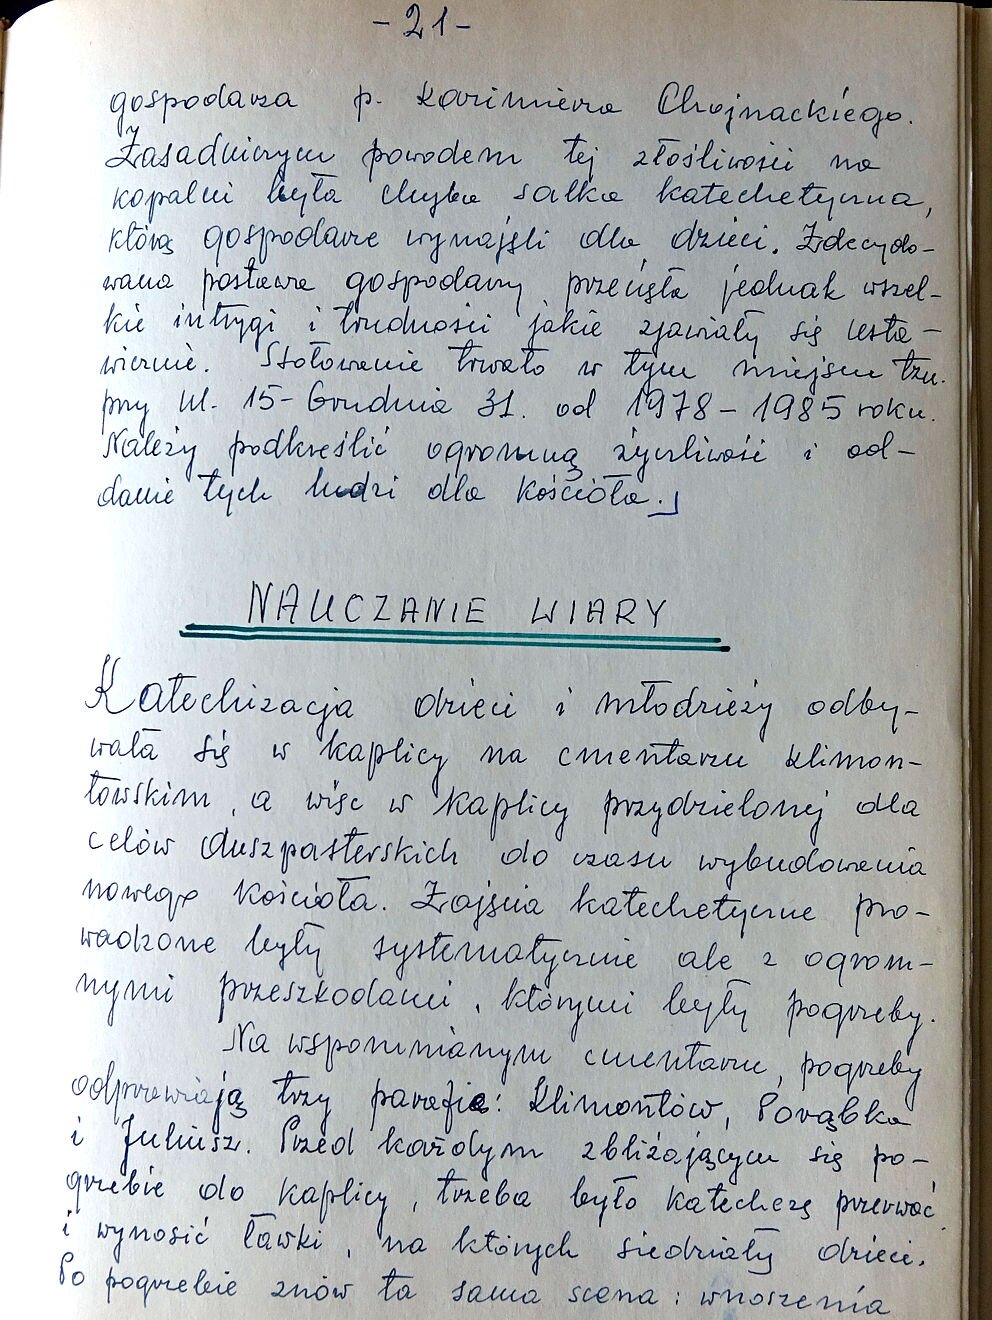 - 21 -
gospodarza p. Kazimierza Chojnackiego.
Zasadniczym powodem tej złośliwości na
kopalni była chyba salka katechetyczna,
którą gospodarze wynajęli dla dzieci. Zdecydo-
wana postawa gospodarzy przecięła jednak wszel-
kie intrygi i trudności jakie zjawiały się usta-
wicznie. Stołowanie trwało w tym miejscu tzn.
przy ul. 15-Grudnia 31. od 1978 - 1985 roku.
Należy podkreślić ogromną życzliwość i od-
danie tych ludzi dla Kościoła.
NAUCZANIE WIARY
Katechizacja dzieci i młodzieży odby-
wała się w kaplicy na cmentarzu klimon-
towskim, a więc w kaplicy przydzielonej dla
celów duszpasterskich do czasu wybudowania
nowego kościoła. Zajęcia katechetyczne pro-
wadzone były systematycznie ale z ogrom-
nymi przeszkodami, którymi były pogrzeby.
Na wspomnianym cmentarzu, pogrzeby
odprawiają trzy parafie: Klimontów, Porąbka
i Juliusz. Przed każdym zbliżającym się po-
grzebie do kaplicy, trzeba było katechezę przerwać
i wynosić ławki, na których siedziały dzieci.
Po pogrzebie znów ta sama scena: wnoszenia